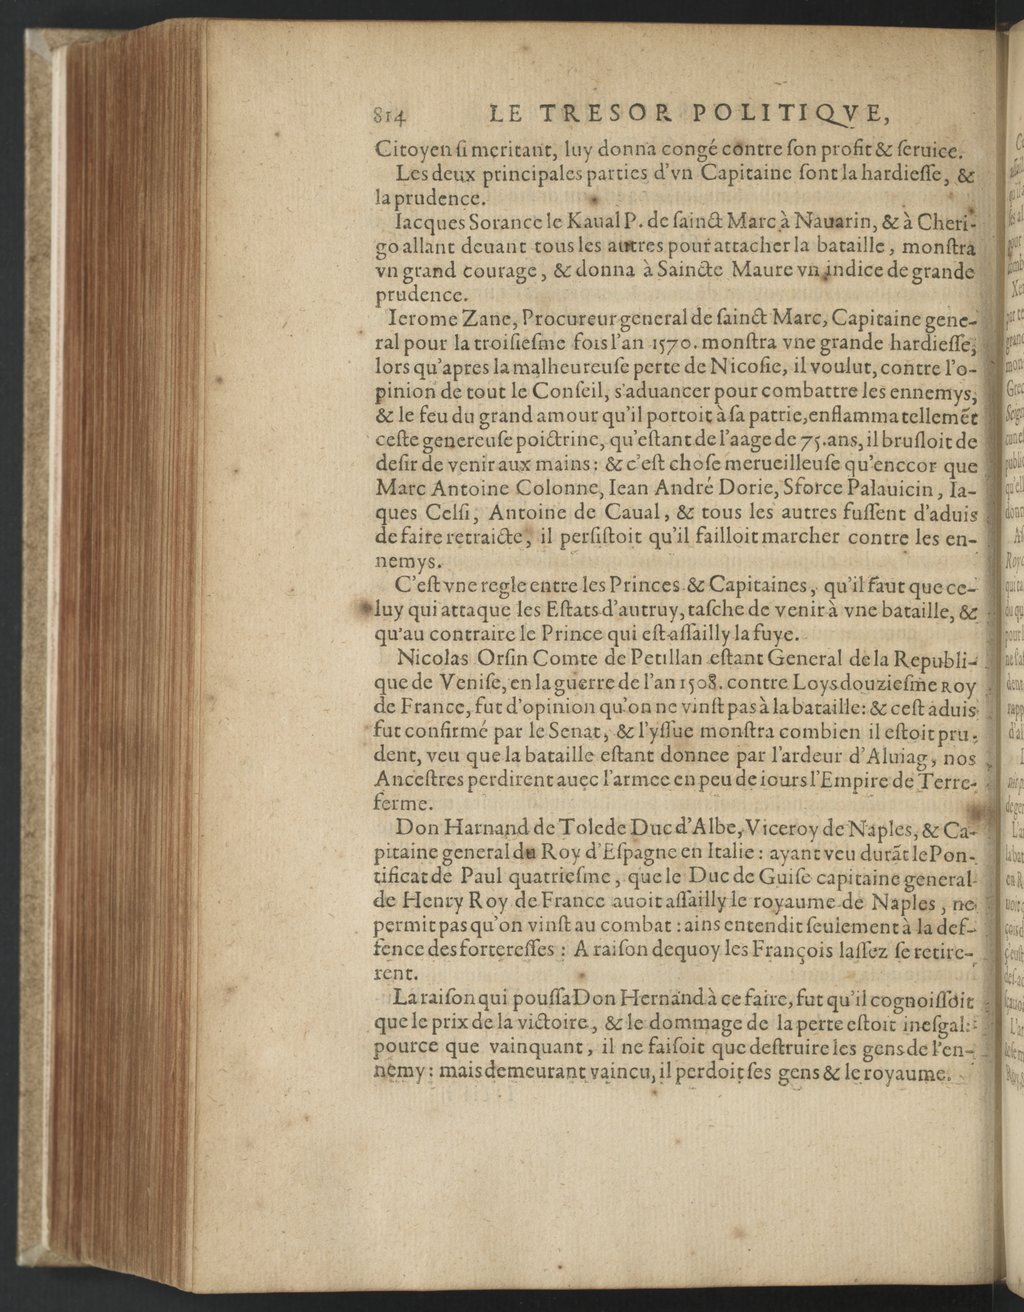 814 LE TRESOR POLITIQVE,
Citoyen ſi meritant, luy donna congé contre ſon profit & ſeruice.
Les deux principales parties d'vn Capitaine ſont la hardieſſe, &
la prudence.
Iacques Sorance le Kaual P. de ſainct Marc à Nauarin, & à Cheri-
go allant deuant tous les autres pour attacher la bataille, monſtra
vn grand courage, & donna à Saincte Maure vn indice de grande
prudence.
Ierome Zane, Procureur general de ſainct Marc, Capitaine gene-
ral pour la troiſieſme fois l'an 1570. monſtra vne grande hardieſſe,
lors qu'apres la malheureuſe perte de Nicoſie, il voulut, contre l'o-
pinion de tout le Conſeil, s'aduancer pour combattre les ennemys,
& le feu du grand amour qu'il portoit à ſa patrie, enflamma tellemẽt
ceſte genereuſe poictrine, qu'eſtant de l'aage de 75. ans, il bruſloit de
deſir de venir aux mains: & c'eſt choſe merueilleuſe qu'enccor que
Marc Antoine Colonne, Iean André Dorie, Sforce Palauicin, Ia-
ques Celſi, Antoine de Caual, & tous les autres fuſſent d'aduis
de faire retraicte, il perſiſtoit qu'il failloit marcher contre les en-
nemys.
C'eſt vne regle entre les Princes & Capitaines, qu'il faut que ce-
luy qui attaque les Eſtats d'autruy, taſche de venir à vne bataille, &
qu'au contraire le Prince qui eſt aſſailly la fuye.
Nicolas Orſin Comte de Petillan eſtant General de la Republi-
que de Veniſe, en la guerre de l'an 1508. contre Loys douzieſme ROY
de France, fut d'opinion qu'on ne vinſt pas à la bataille: & ceſt aduis
fut confirmé par le Senat, & l'yſſue monſtra combien il eſtoit pru-
dent, veu que la bataille eſtant donnee par l'ardeur d'Aluiag, nos
Anceſtres perdirent auec l'armee en peu de iours l'Empire de Terre-
ferme.
Don Harnand de Tolede Duc d'Albe, Viceroy de Naples, & Ca-
pitaine general du Roy d'Eſpagne en Italie: ayant veu durãt le Pon-
tificat de Paul quatrieſme, que le Duc de Guiſe capitaine general
de Henry Roy de France auoit aſſailly le royaume de Naples, ne
permit pas qu'on vinſt au combat: ains entendit ſeulement à la def-
fence des fortereſſes: A raiſon dequoy les François laſſez ſe retire-
rent.
La raiſon qui pouſſa Don Hernand à ce faire, fut qu'il cognoiſſoit
que le prix de la victoire, & le dommage de la perte eſtoit ineſgal:
pource que vainquant, il ne faiſoit que deſtruire les gens de l'en-
nemy: mais demeurant vaincu, il perdoit ſes gens & le royaume.